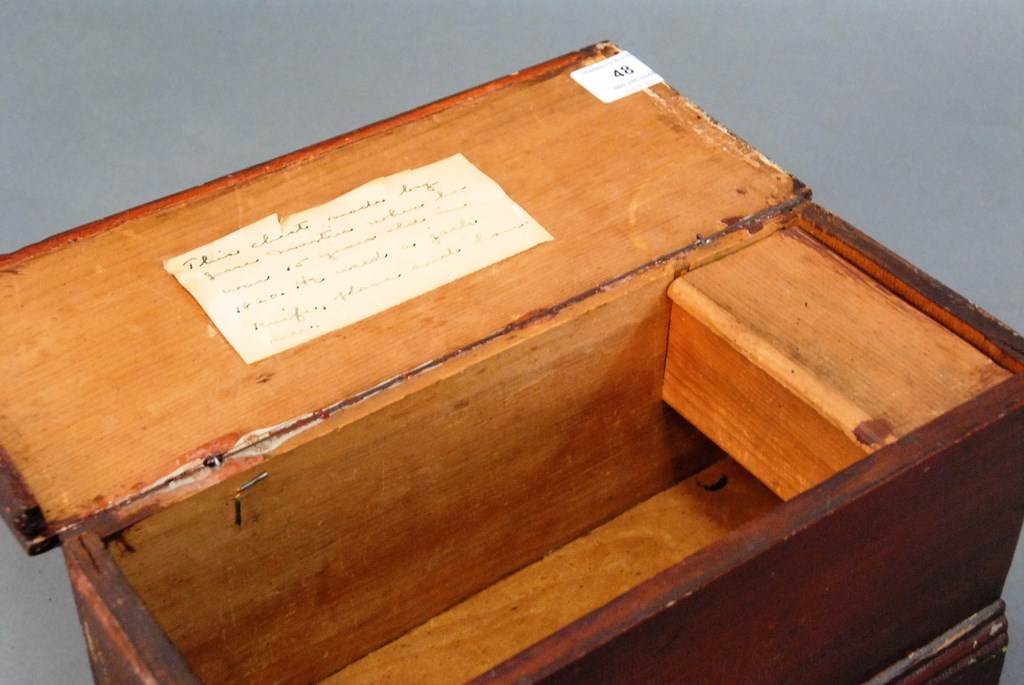 48
This chest made by
Jesse when he
was 15 years old in
1820. He used a jack
knife, plane and ham-
mer.